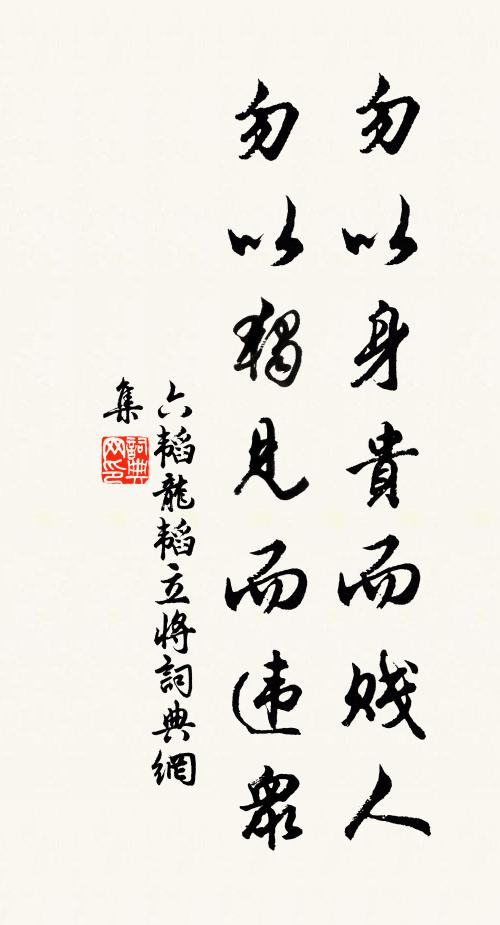 勿以身貴而賤人
勿以獨見而违眾
六韜龍韜立將詞典網
集
詞典網印